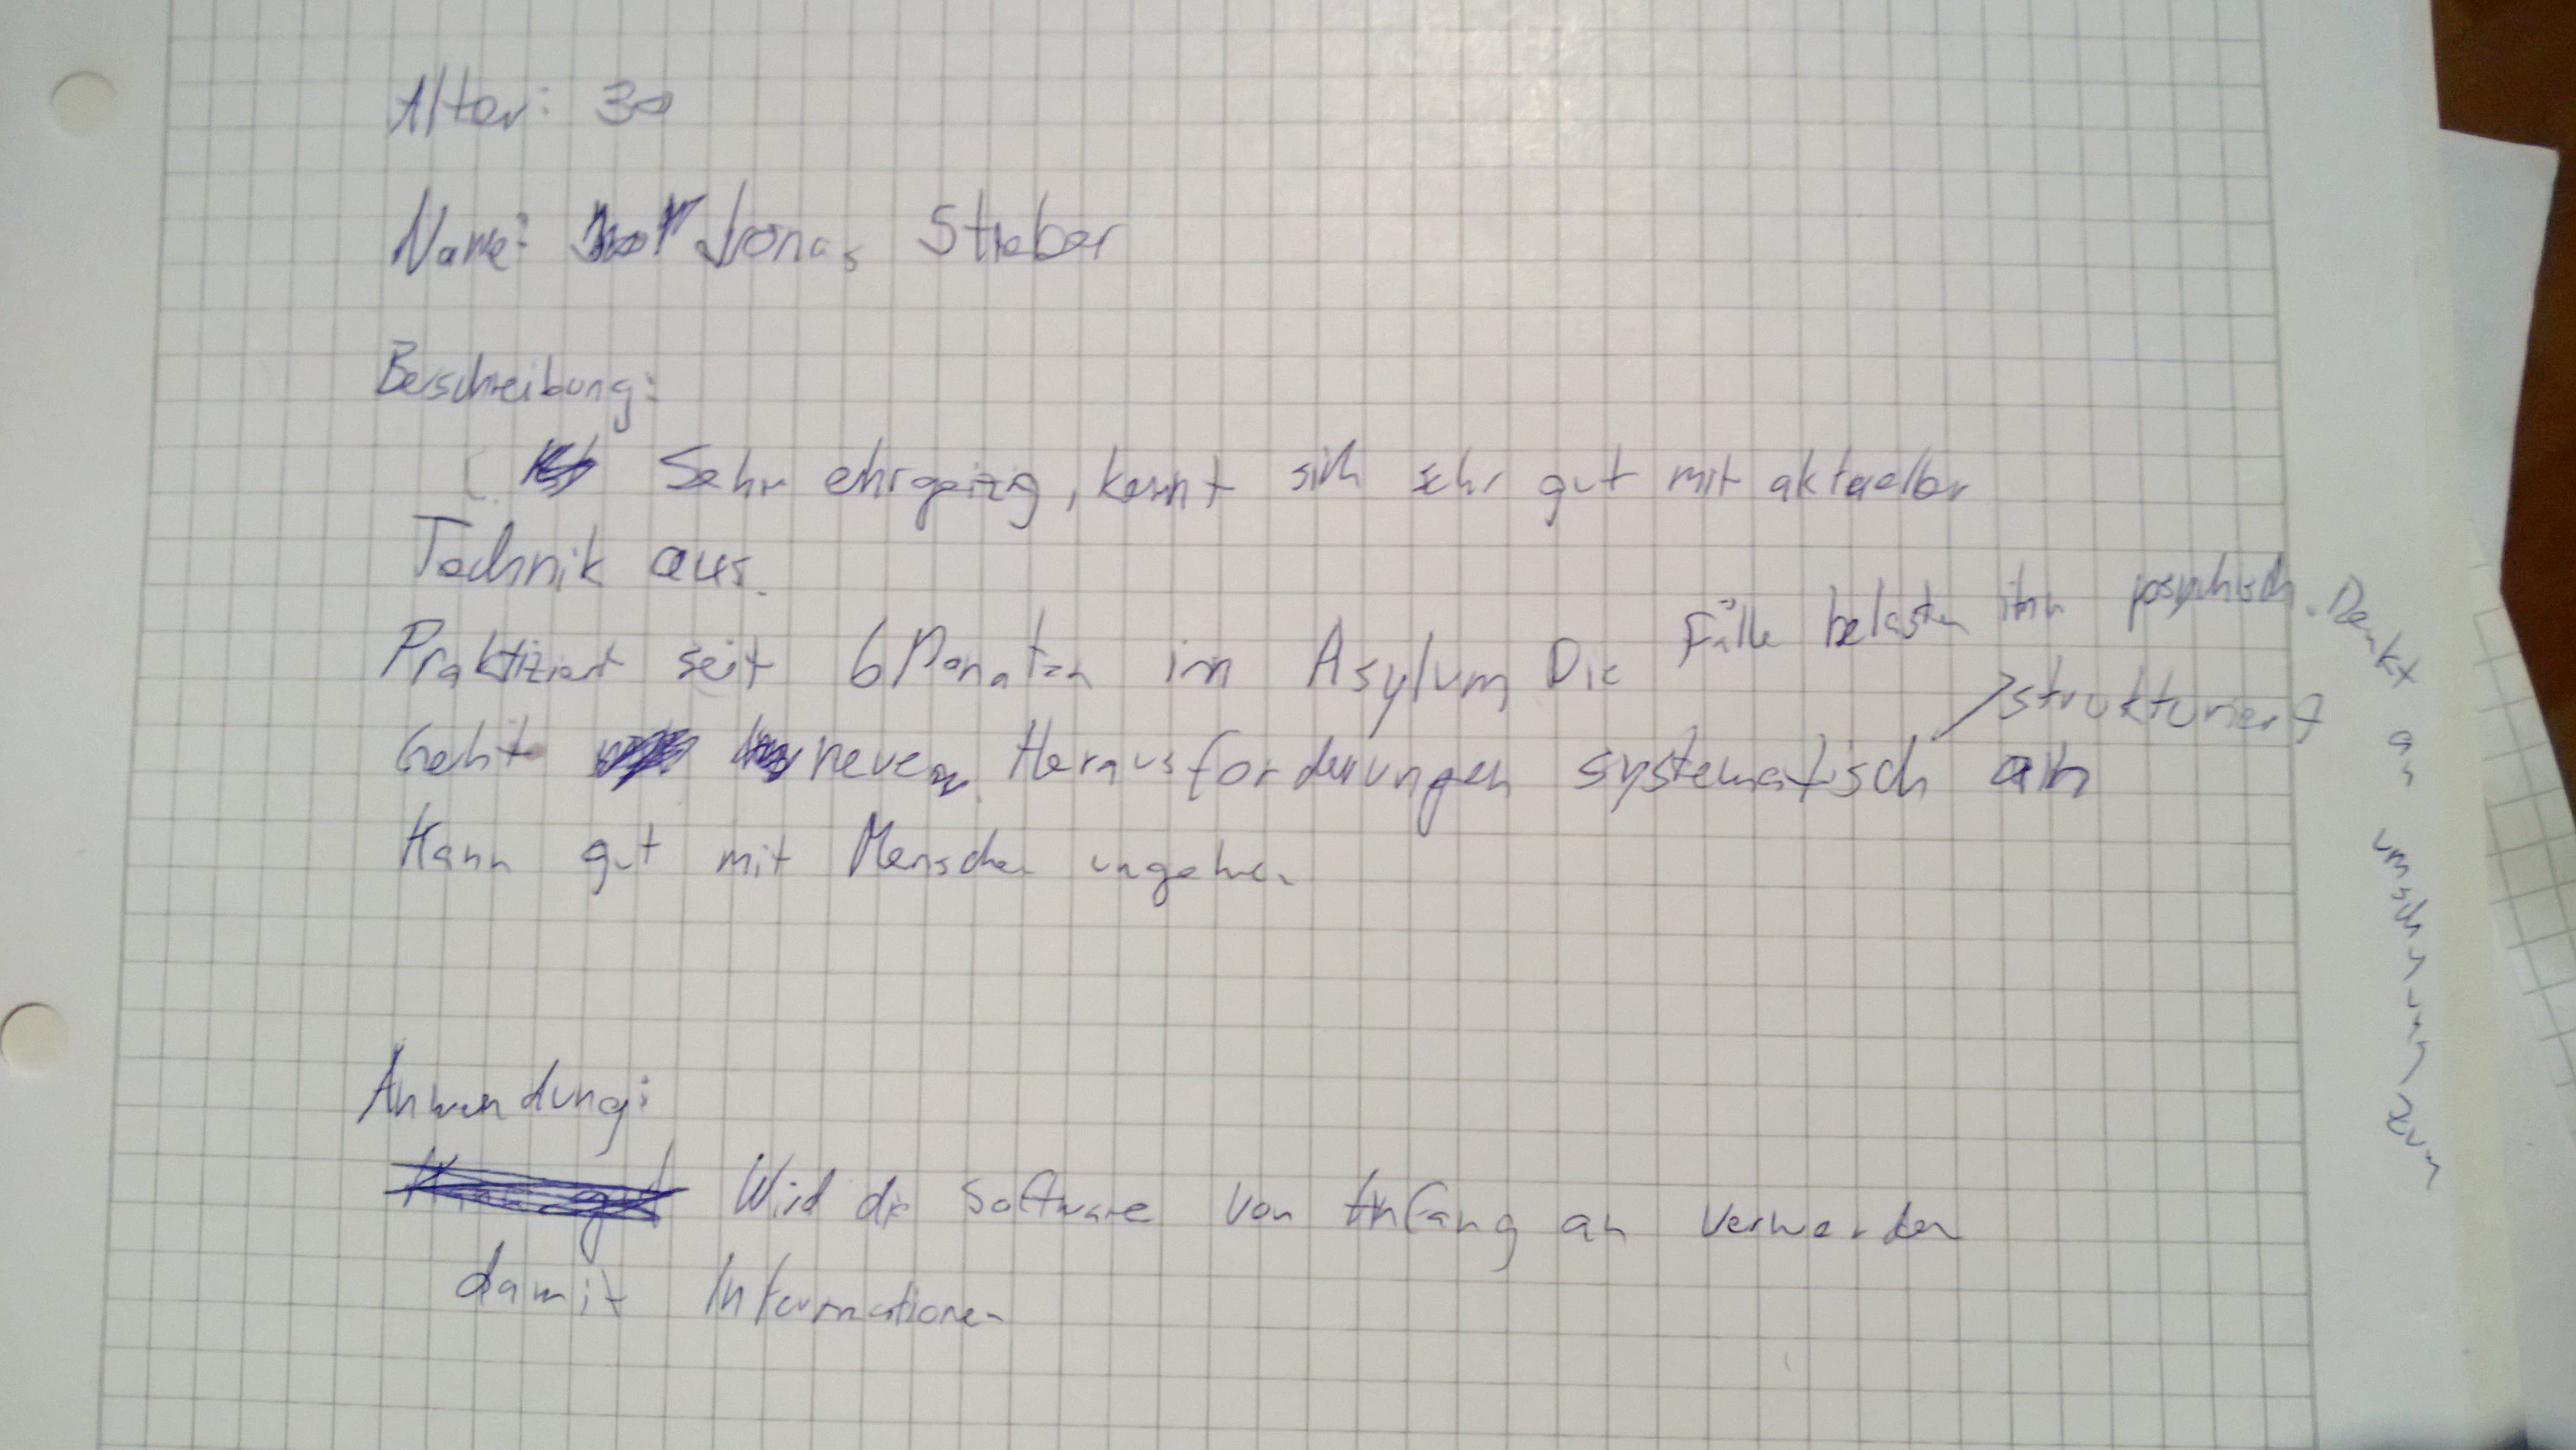 Alter: 30
Name: Jonas Streber
Beschreibung:
Sehr ehrgeizig, kennt sich sehr gut mit aktueller
Technik aus.
Praktiziert seit 6 Monaten im Asylum Die Fälle belasten ihn psychisch. Denkt an umschulung zum
strukturiert
Geht neue Herausforderungen systematisch an
Kann gut mit Menschen umgehen
Anwendung:
Wird die Software von Anfang an verwenden
damit Informationen